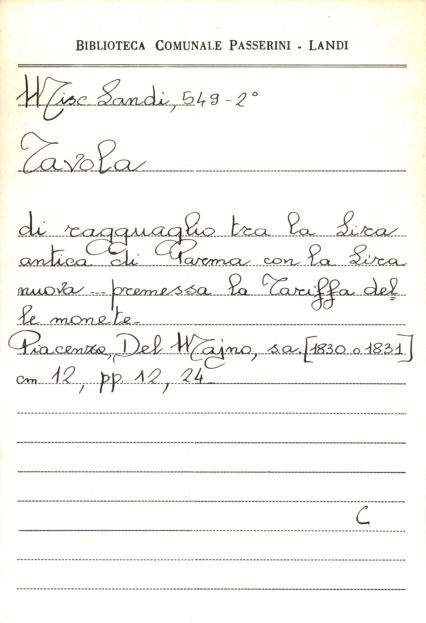 BIBLIOTECA COMUNALE PASSERINI - LANDI
Misc. Landi, 549-2°
Tavola
di ragguaglio tra la Lira
antica di Parma con la Lira
nuova - premessa la Tariffa del=
le monete.
Piacenza, Del Majno, s.a. [1830 o 1831]
cm 12, pp. 12, 24.
C